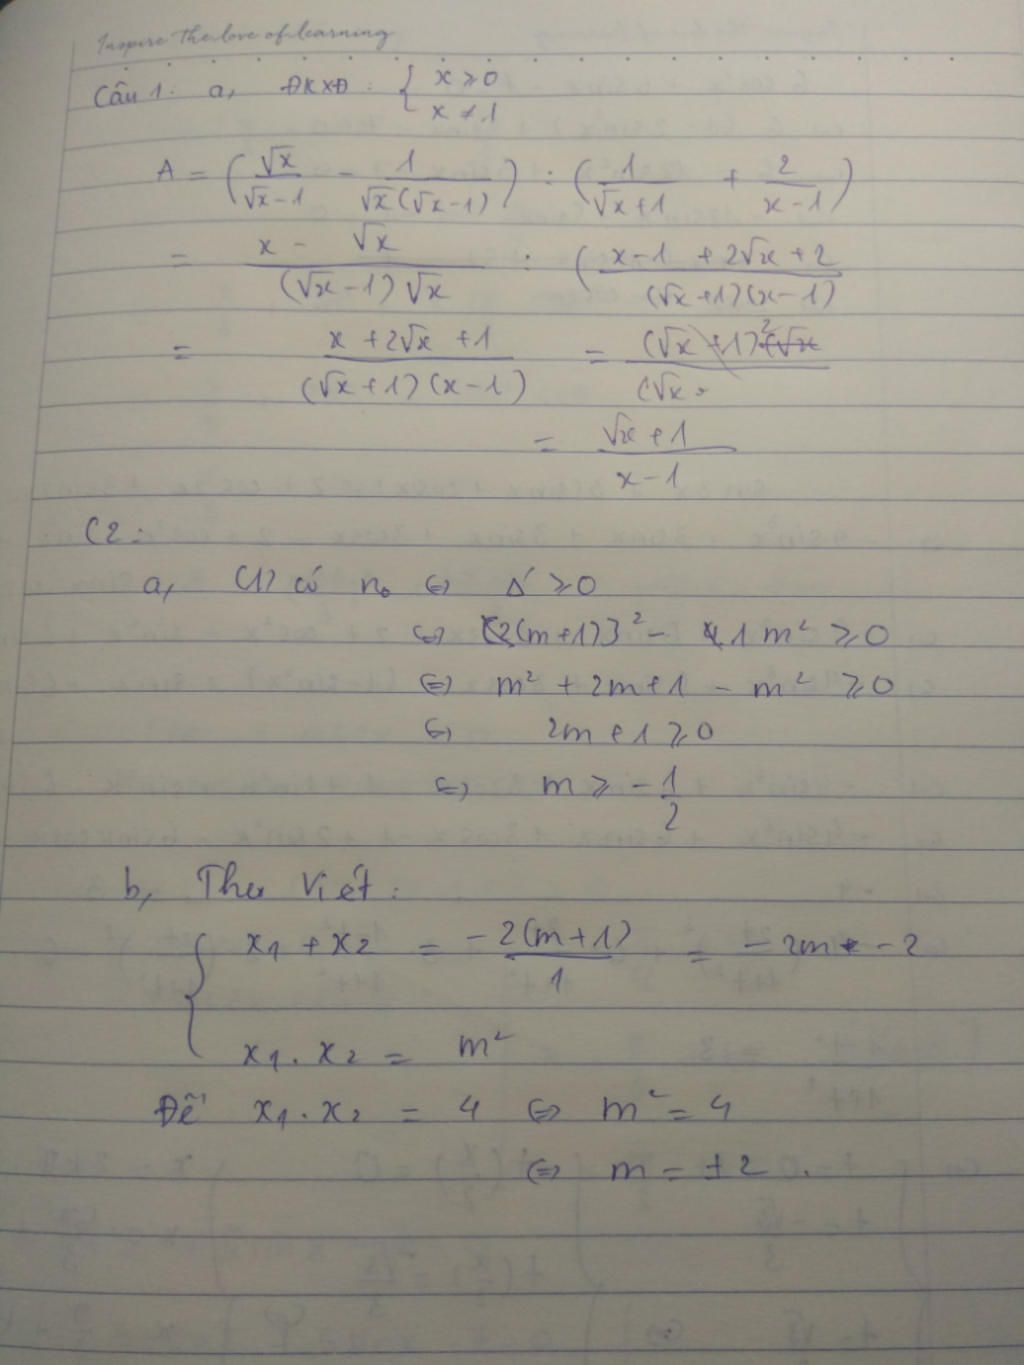 Inspire the love of learning
Câu 1: a, ĐKXĐ: { x ⩾ 0
x ≠ 1
A = (√x/(√x-1) - 1/(√x(√x-1))) : (1/(√x+1) + 2/(x-1))
= (x - √x)/((√x-1)√x) : ((x-1 + 2√x + 2)/((√x+1)(x-1))
= (x + 2√x + 1)/((√x+1)(x-1)) = (√x+1)²/(√x
= (√x+1)/(x-1)
C2:
a, (1) có n₀ ⇔ Δ' ⩾ 0
⇔ (m+1)² - 1m² ⩾ 0
⇔ m² + 2m + 1 - m² ⩾ 0
⇔ 2m + 1 ⩾ 0
⇔ m ⩾ -1/2
b, Theo Viét:
{ x₁ + x₂ = -2(m+1)/1 = -2m - 2
x₁.x₂ = m²
Để x₁.x₂ = 4 ⇔ m² = 4
⇔ m = ±2.